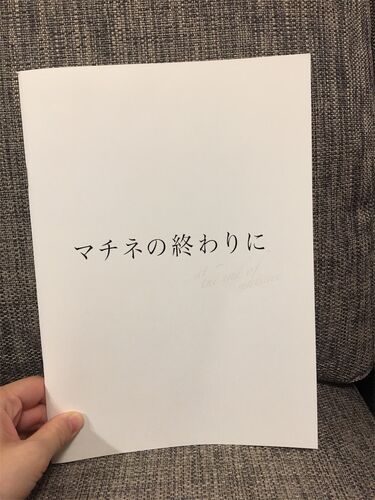 マチネの終わりに
at the end of